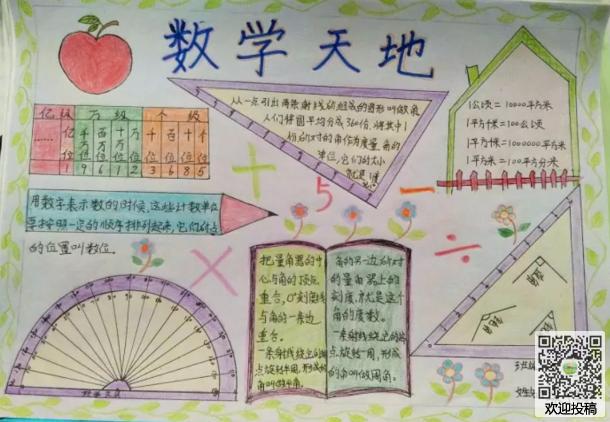 数学天地
亿级 万级 个级
…… 亿位 千万位 百万位 十万位 万位 千位 百位 十位 个位
1 9 6 1 2 3 6 8 5
用数字表示数的时候,这些计数单位
要按照一定的顺序排列起来,它们所占
的位置叫数位。
从一点引出两条射线所组成的图形叫做角
人们将圆平均分成360份,将其中1
份所对的角作为度量角的
单位,它们的大小
就是1度
1公顷=10000平方米
1平方千米=100公顷
1平方千米=1000000平方米
1平方米=100平方分米
+ 5 − × ÷
把量角器的中
心与角的顶点
重合,0°刻度线
与角的一条边
重合。
一条射线绕它的端
点旋转半周,形成的
角叫做平角。
角的另一边所对
的量角器上的
刻度,就是这个
角的度数。
一条射线绕它的端
点旋转一周,形成
的角叫做周角。
班级
姓名
欢迎投稿